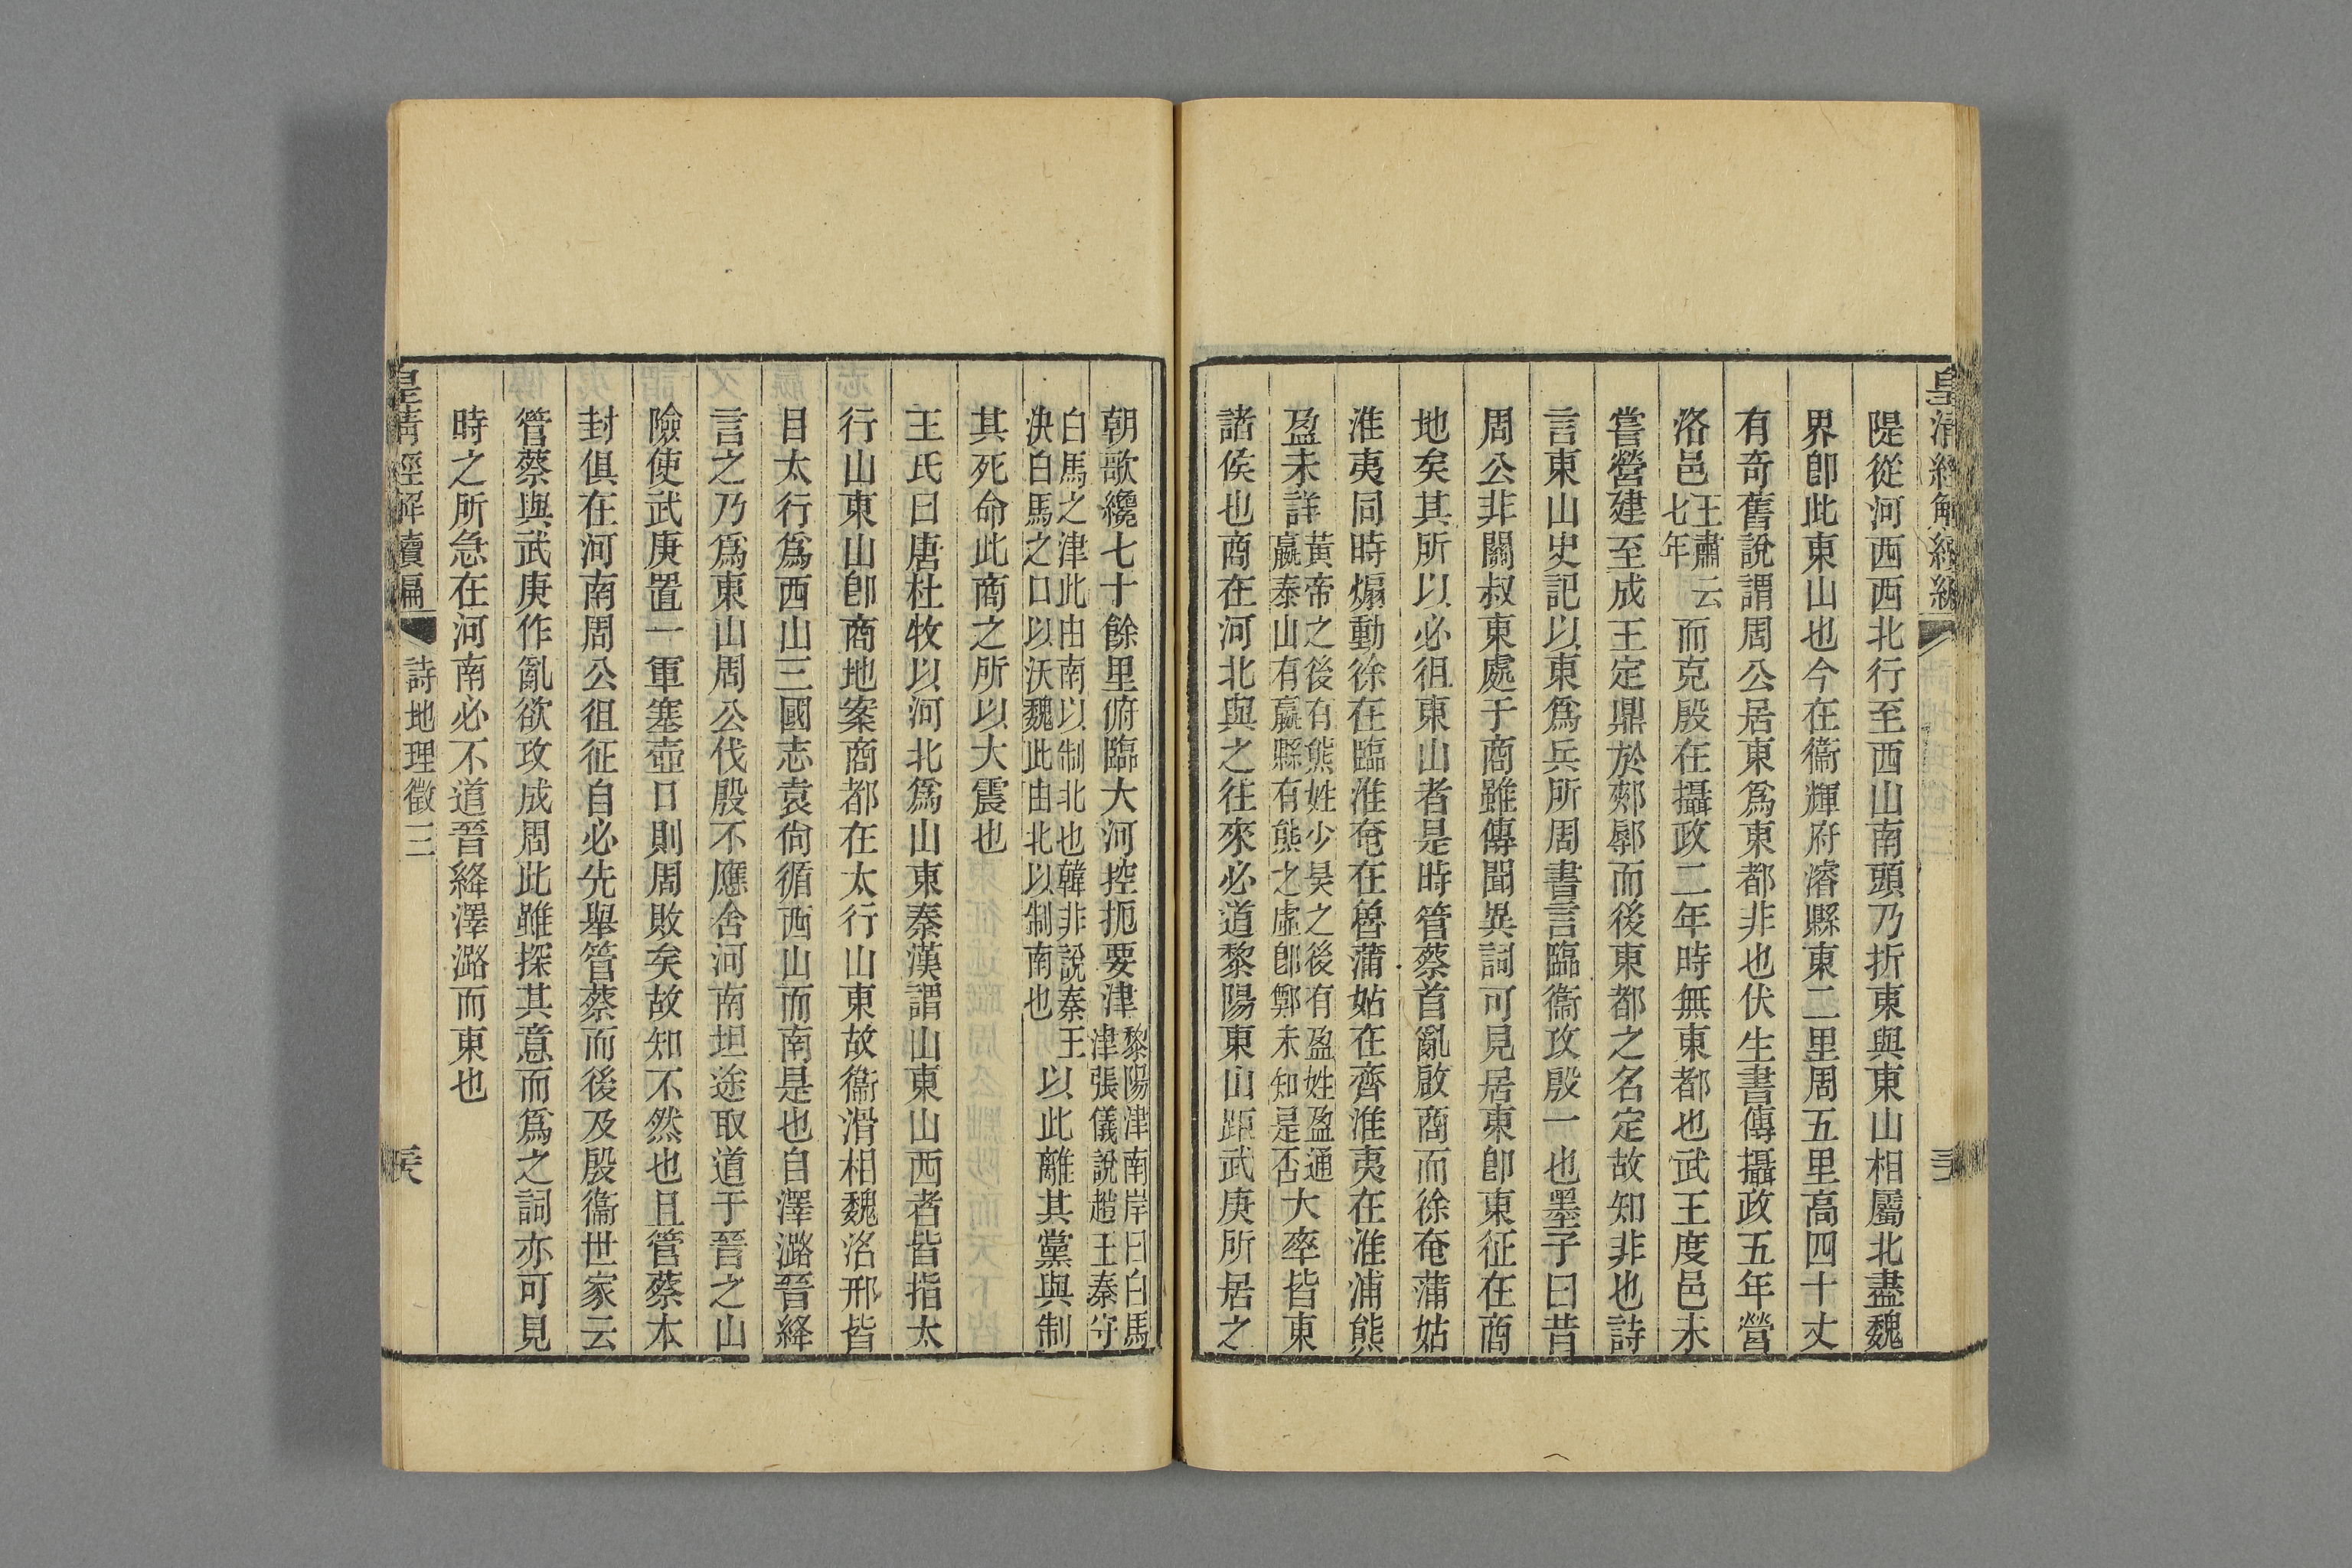 皇清經解續編
隄從河西西北行至西山南頭乃折東與東山相屬北盡魏
界卽此東山也今在衞輝府濬縣東二里周五里高四十丈
有奇舊說謂周公居東爲東都非也伏生書傳攝政五年營
洛邑王肅云七年而克殷在攝政二年時無東都也武王度邑未
嘗營建至成王定鼎於郟鄏而後東都之名定故知非也詩
言東山史記以東爲兵所周書言臨衞攻殷一也墨子曰昔
周公非關叔東處于商雖傳聞異詞可見居東卽東征在商
地矣其所以必徂東山者是時管蔡首亂啟商而徐奄蒲姑
淮夷同時煽動徐在臨淮奄在魯蒲姑在齊淮夷在淮浦熊
盈未詳黃帝之後有熊姓少昊之後有盈姓盈通嬴泰山有嬴縣有熊之虛卽鄭未知是否大率皆東
諸侯也商在河北與之往來必道黎陽東山距武庚所居之
朝歌纔七十餘里俯臨大河控扼要津黎陽津南岸曰白馬津張儀說趙王秦守
白馬之津此由南以制北也韓非說秦王決白馬之口以沃魏此由北以制南也以此離其黨與制
其死命此商之所以大震也
王氏曰唐杜牧以河北爲山東秦漢謂山東山西者皆指太
行山東山卽商地案商都在太行山東故衞滑相魏洺邢皆
目太行爲西山三國志袁尙循西山而南是也自澤潞晉絳
言之乃爲東山周公伐殷不應舍河南坦途取道于晉之山
險使武庚置一軍塞壺口則周敗矣故知不然也且管蔡本
封俱在河南周公徂征自必先舉管蔡而後及殷衞世家云
管蔡與武庚作亂欲攻成周此雖探其意而爲之詞亦可見
時之所急在河南必不道晉絳澤潞而東也
皇清經解續編
詩地理徵三